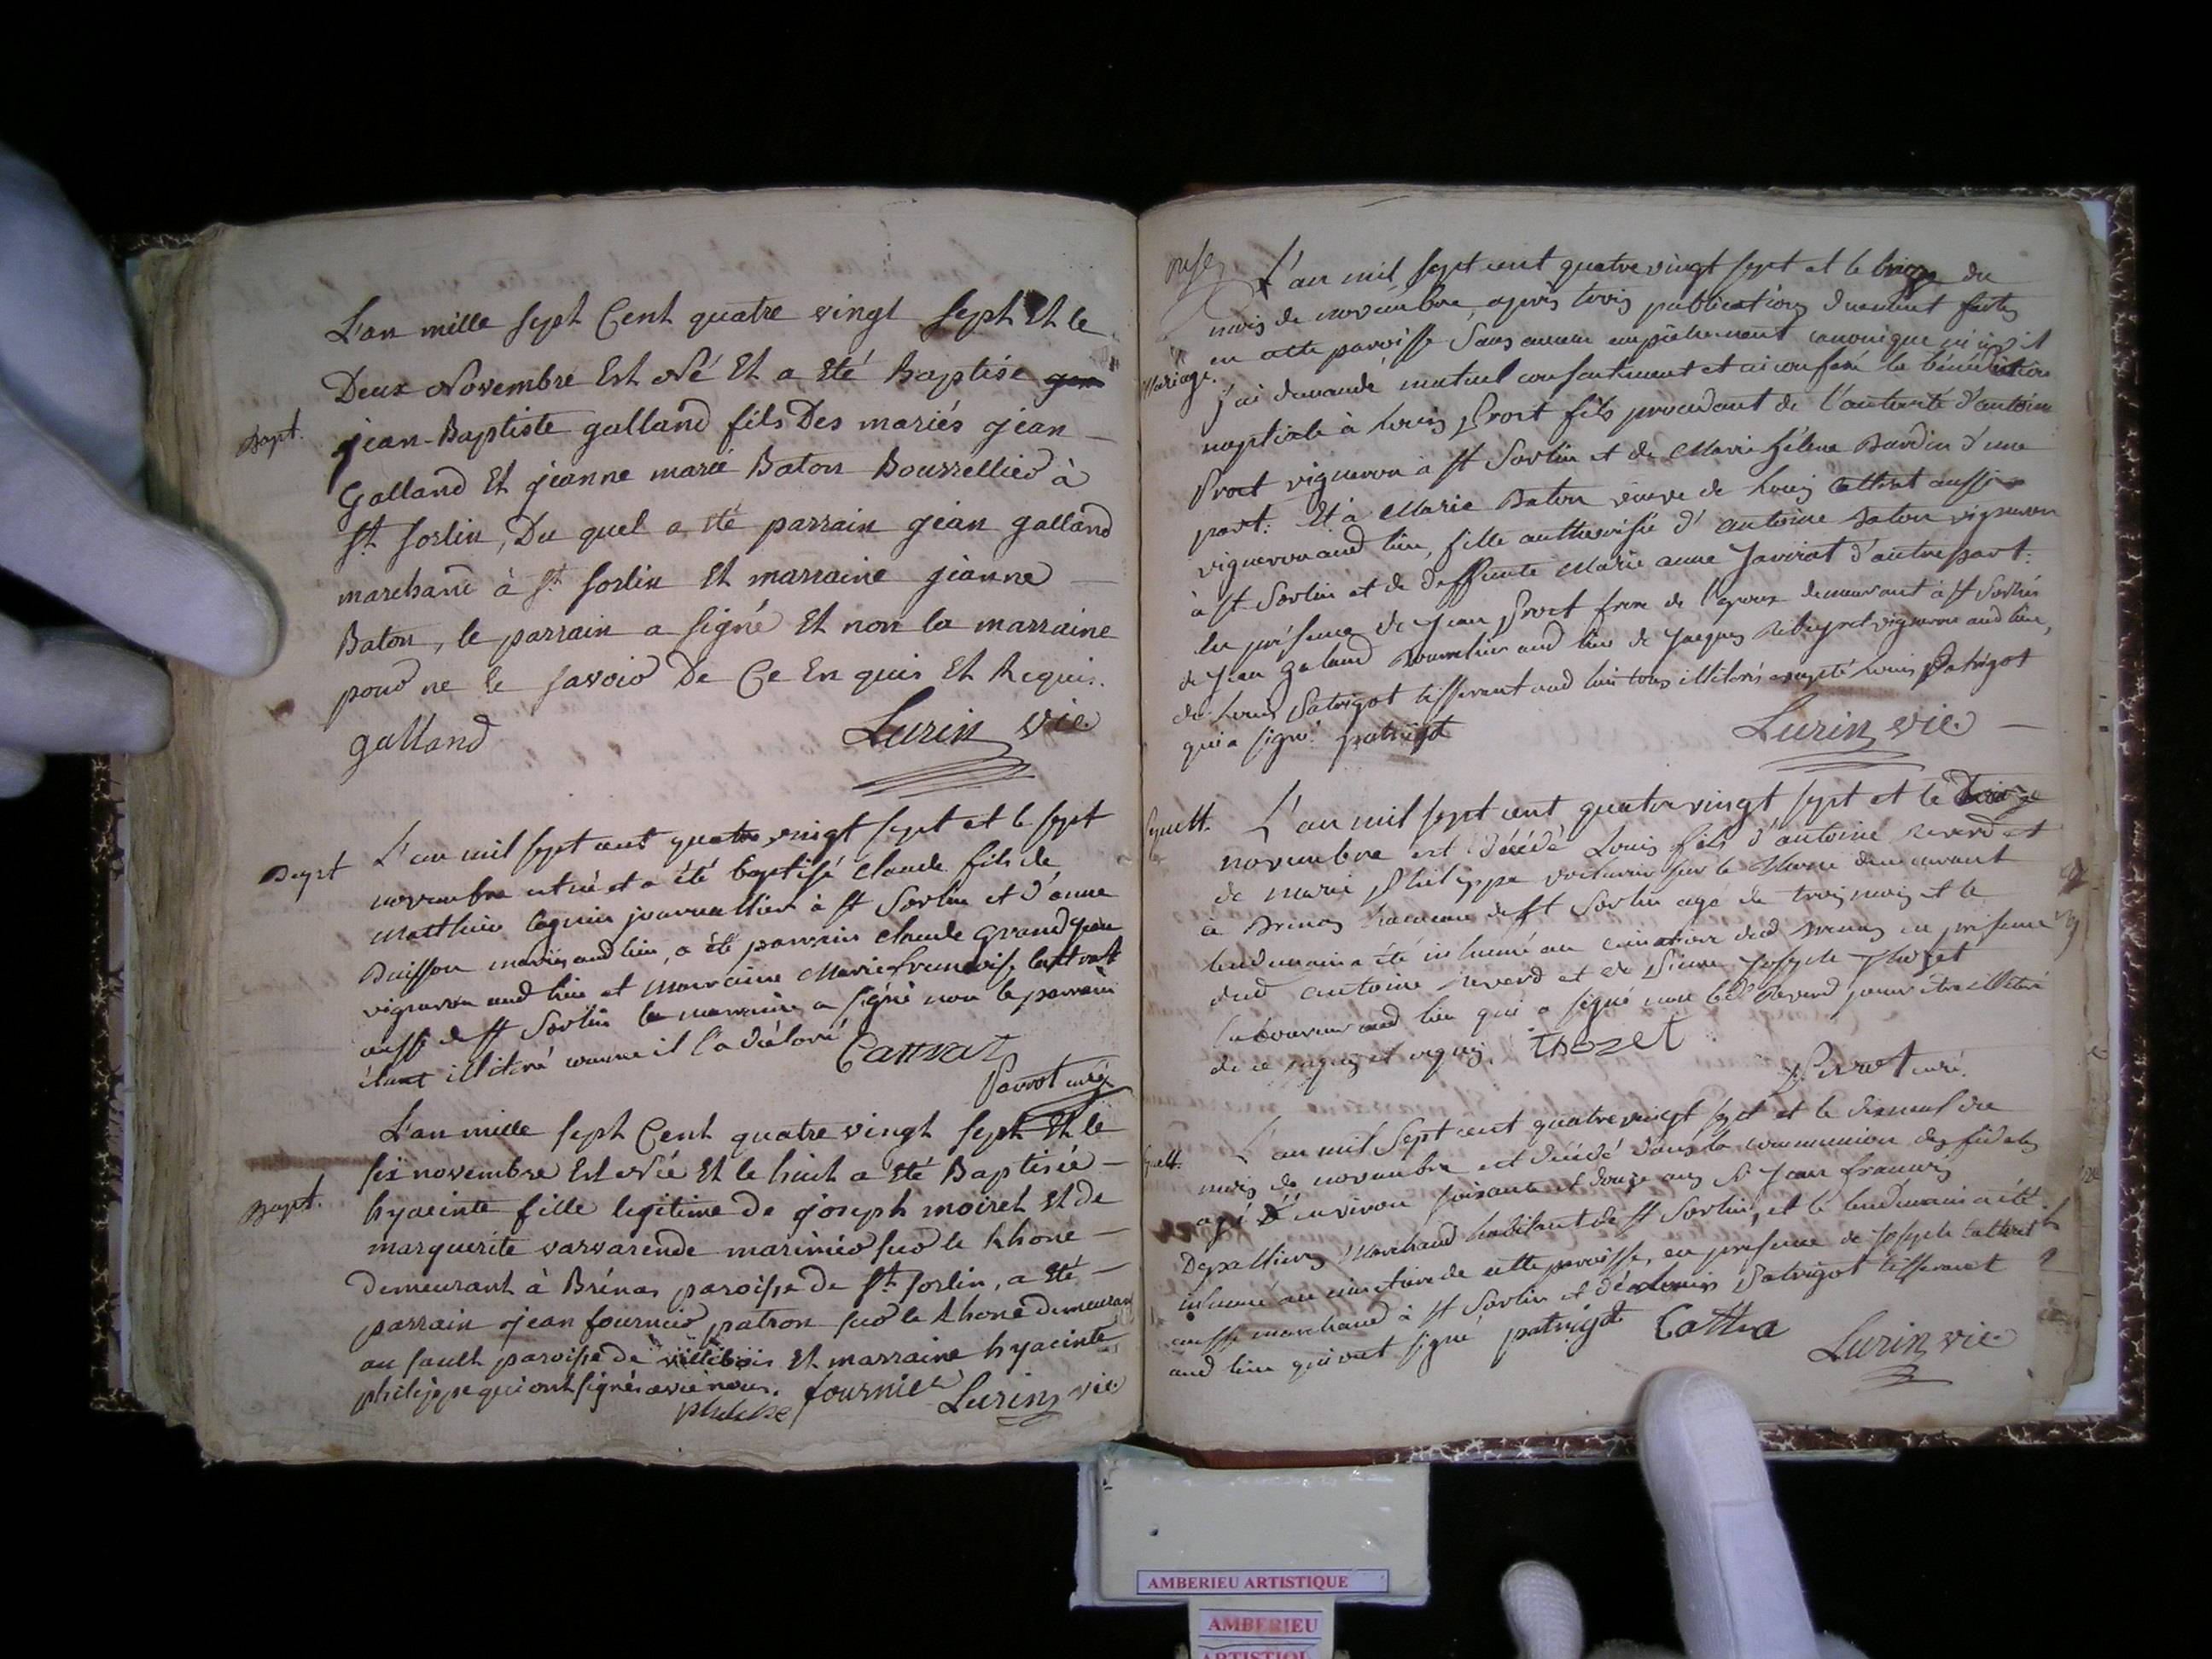 Bapt.
L'an mille sept Cent quatre vingt sept Et le
Deux Novembre Est Né Et a Eté Baptisé
jean-Baptiste galland fils Des mariés jean
Galland Et jeanne marie Baton Bourrellier à
St Sorlin, Du quel a eté parrain jean galland
marchand à St Sorlin Et marraine jeanne
Baton, le parrain a signé Et non la marraine
pour ne le savoir De Ce En quis Et Requis.
galland Lurin vic
Bapt
L'an mil sept cent quatre vingt sept et le sept
novembre est né et a été baptisé claude fils de
Matthieu journallier à St Sorlin et d'anne
Buisson mariés aud lieu, a été parrain claude Grandjean
vigneron aud lieu et marraine Marie francoise
aussi de St Sorlin la marraine a signé non le parrain
étant illiteré comme il l'a déclaré Cattrat
Perrot curé
Bapt.
L'an mille sept Cent quatre vingt sept Et le
six novembre Est Née Et le huit a Eté Baptisée
hyacinte fille legitime de joseph moiret Et de
marguerite varvarende marinier sur le Rhone
demeurant à Brénas paroisse de St Sorlin, a Eté
parrain jean fournier patron sur le Rhone demeurant
au sault paroisse de villebois Et marraine hyacinte
philippe qui ont signés avec nous. fournier Lurin vic
philippe
onse
Mariage.
L'an mil sept cent quatre vingt sept et le du
mois de novembre, après trois publications duement faites
en cette paroisse Sans aucun empêchement canonique ni civil
j'ai demandé mutuel consentement et ai conferé la bénédiction
nuptiale à Louis Proct fils procedant de l'autorité d'antoine
Proct vigneron à St Sorlin et de Marie hélène Bardin d'une
part: Et à Marie Baton veuve de Louis aussi
vigneron aud lieu, fille authorisée d'antoine Baton vigneron
à St Sorlin et de deffunte Marie anne Javirat d'autre part:
en présence de Jean Proct frere de l'époux demeurant à St Sorlin
de Jean Galand Bourrelier aud lieu de Jacques vigneron aud lieu,
de Louis Patrigot tisserant aud lieu tous illiterés excepté Louis Patrigot
qui a signé. patrigot Lurin vic
L'an mil sept cent quatre vingt sept et le
novembre est décédé Louis fils d'antoine Reverd et
de marie Philippe voiturier sur le Rhone demeurant
à Brenas hameau de St Sorlin agé de trois mois et le
lendemain a été inhumé au cimetière dud Brenas en presence
dud antoine Reverd et de Pierre Joseph Thozet
laboureur aud lieu qui a signé non led Reverd pour être illiteré
de ce enquis et requis. thozet
Perrot curé.
L'an mil Sept cent quatre vingt sept et le dixneuf du
mois de novembre est décédé dans la communion des fideles
agé d'environ soixante et douze ans Sr Jean francois
Depalliers Marchand habitant de St Sorlin, et le lendemain a été
inhumé au cimetiere de cette paroisse, en presence de Joseph
aussi marchand à St Sorlin et de Louis Patrigot tisserant
aud lieu qui ont signé patrigot Cattra
Lurin vic
AMBERIEU ARTISTIQUE
AMBERIEU
ARTISTIQUE